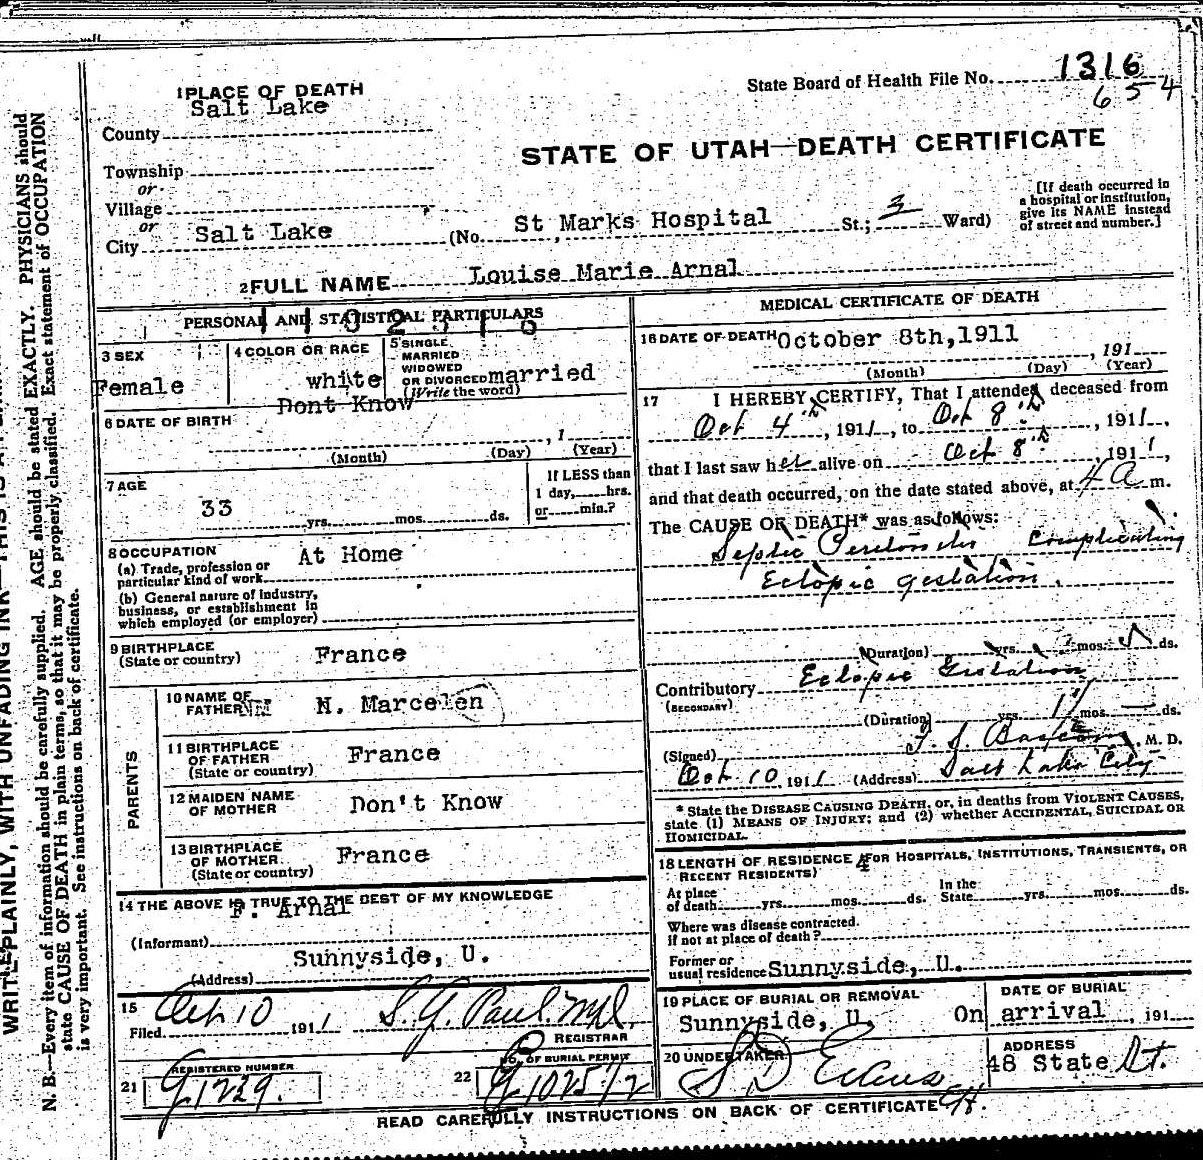 State Board of Health File No. 1316
654
1 PLACE OF DEATH
Salt Lake
County
STATE OF UTAH—DEATH CERTIFICATE
Township
or
Village
or
City Salt Lake (No. St Marks Hospital St.; 3 Ward)
[If death occurred in
a hospital or institution,
give its NAME instead
of street and number.]
2 FULL NAME Louise Marie Arnal
PERSONAL AND STATISTICAL PARTICULARS
3 SEX
Female
4 COLOR OR RACE
white
5 SINGLE
MARRIED
WIDOWED
OR DIVORCED married
(Write the word)
Dont Know
6 DATE OF BIRTH
, 1
(Month) (Day) (Year)
7 AGE
33 yrs. mos. ds.
If LESS than
1 day, hrs.
or min.?
8 OCCUPATION At Home
(a) Trade, profession or
particular kind of work
(b) General nature of industry,
business, or establishment in
which employed (or employer)
9 BIRTHPLACE
(State or country) France
PARENTS
10 NAME OF
FATHER N. Marcelen
11 BIRTHPLACE
OF FATHER
(State or country) France
12 MAIDEN NAME
OF MOTHER Don't Know
13 BIRTHPLACE
OF MOTHER
(State or country) France
14 THE ABOVE IS TRUE TO THE BEST OF MY KNOWLEDGE
F. Arnal
(Informant)
Sunnyside, U.
(Address)
15 Oct 10
Filed 1911 S. G. Paul. MD.
REGISTRAR
REGISTERED NUMBER
21 G1229.
NO. OF BURIAL PERMIT
22 G10257/2
MEDICAL CERTIFICATE OF DEATH
16 DATE OF DEATH October 8th, 1911
, 191
(Month) (Day) (Year)
17 I HEREBY CERTIFY, That I attended deceased from
Oct 4th, 1911, to Oct 8th, 1911,
that I last saw her alive on Oct 8th, 1911,
and that death occurred, on the date stated above, at 4 A m.
The CAUSE OF DEATH* was as follows:
Septic Peritonitis Complicating
Ectopic gestation.
(Duration) yrs. mos. ds.
Contributory Ectopic Gestation
(SECONDARY)
(Duration) yrs. mos. ds.
(Signed) M. D.
Oct 10 1911 (Address) Salt Lake City
* State the DISEASE CAUSING DEATH, or, in deaths from VIOLENT CAUSES,
state (1) MEANS OF INJURY; and (2) whether ACCIDENTAL, SUICIDAL OR
HOMICIDAL.
18 LENGTH OF RESIDENCE (FOR HOSPITALS, INSTITUTIONS, TRANSIENTS, OR
RECENT RESIDENTS) 4
At place
of death yrs. mos. ds.
In the
State yrs. mos. ds.
Where was disease contracted.
if not at place of death?
Former or
usual residence Sunnyside, U.
19 PLACE OF BURIAL OR REMOVAL
Sunnyside, U.
DATE OF BURIAL
On arrival , 191
20 UNDERTAKER
S D Evans
ADDRESS
48 State St.
READ CAREFULLY INSTRUCTIONS ON BACK OF CERTIFICATE
WRITE PLAINLY, WITH UNFADING INK—THIS IS A
N. B.—Every item of information should be carefully supplied. AGE should be stated EXACTLY. PHYSICIANS should
state CAUSE OF DEATH in plain terms, so that it may be properly classified. Exact statement of OCCUPATION
is very important. See instructions on back of certificate.